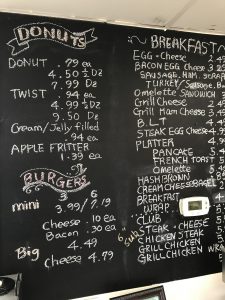 DONUTS
DONUT .79 ea
4.50 ½ Dz
7.99 Dz
TWIST .94 ea
4.99 ½ Dz
9.50 Dz
Cream/Jelly filled
.94 ea
APPLE FRITTER
1.39 ea
BURGERS
3 6
mini 3.99/7.19
Cheese .10 ea
Bacon .30 ea
Big 4.49
Cheese 4.99
BREAKFAST
EGG + Cheese
BACON EGG Cheese
SAUSAGE, HAM,
TURKEY
Omelette SANDWICH
Grill Cheese
Grill Ham Cheese
B.L.T
STEAK EGG Cheese
PLATTER
PANCAKE
FRENCH TOAST
Omelette
HASHBROWN
CREAM CHEESE BAGEL
BREAKFAST
WRAP
6" Subs
CLUB
STEAK + CHEESE
CHICKEN STEAK
GRILL CHICKEN
GRILL CHICKEN